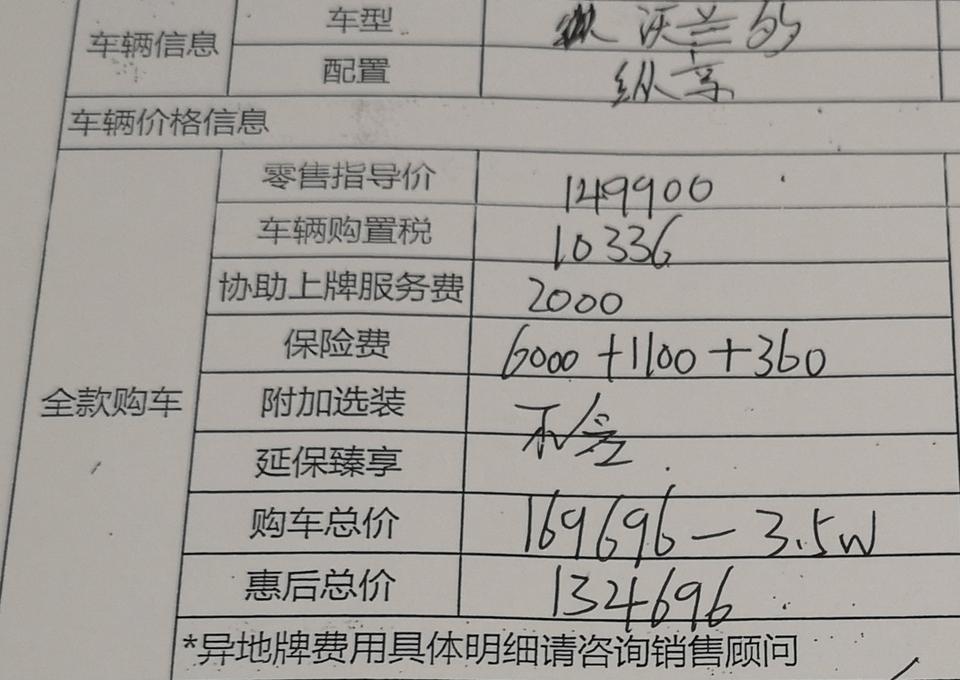 车辆信息 车型 沃兰多
配置 纵享
车辆价格信息
全款购车 零售指导价 149900
车辆购置税 10336
协助上牌服务费 2000
保险费 6000+1100+360
附加选装 不含
延保臻享
购车总价 169696-3.5W
惠后总价 134696
*异地牌费用具体明细请咨询销售顾问